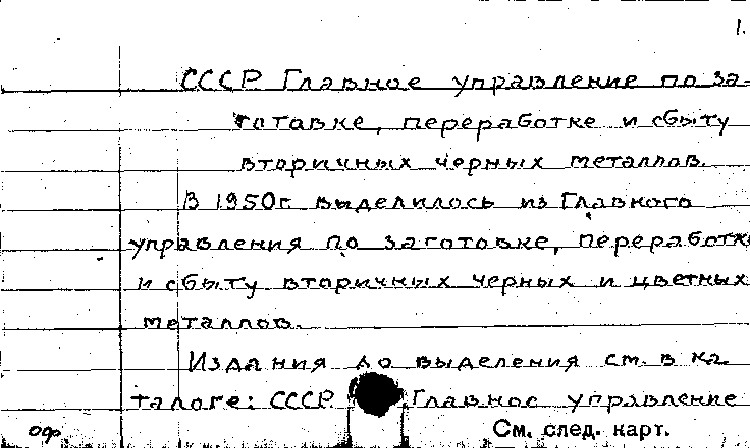 1.
СССР. Главное управление по за-
готовке, переработке и сбыту
вторичных черных металлов.
В 1950г. выделилось из Главного
управления по заготовке, переработке
и сбыту вторичных черных и цветных
металлов.
Издания до выделения см. в ка-
талоге: СССР. Главное управление
офр См. след. карт.